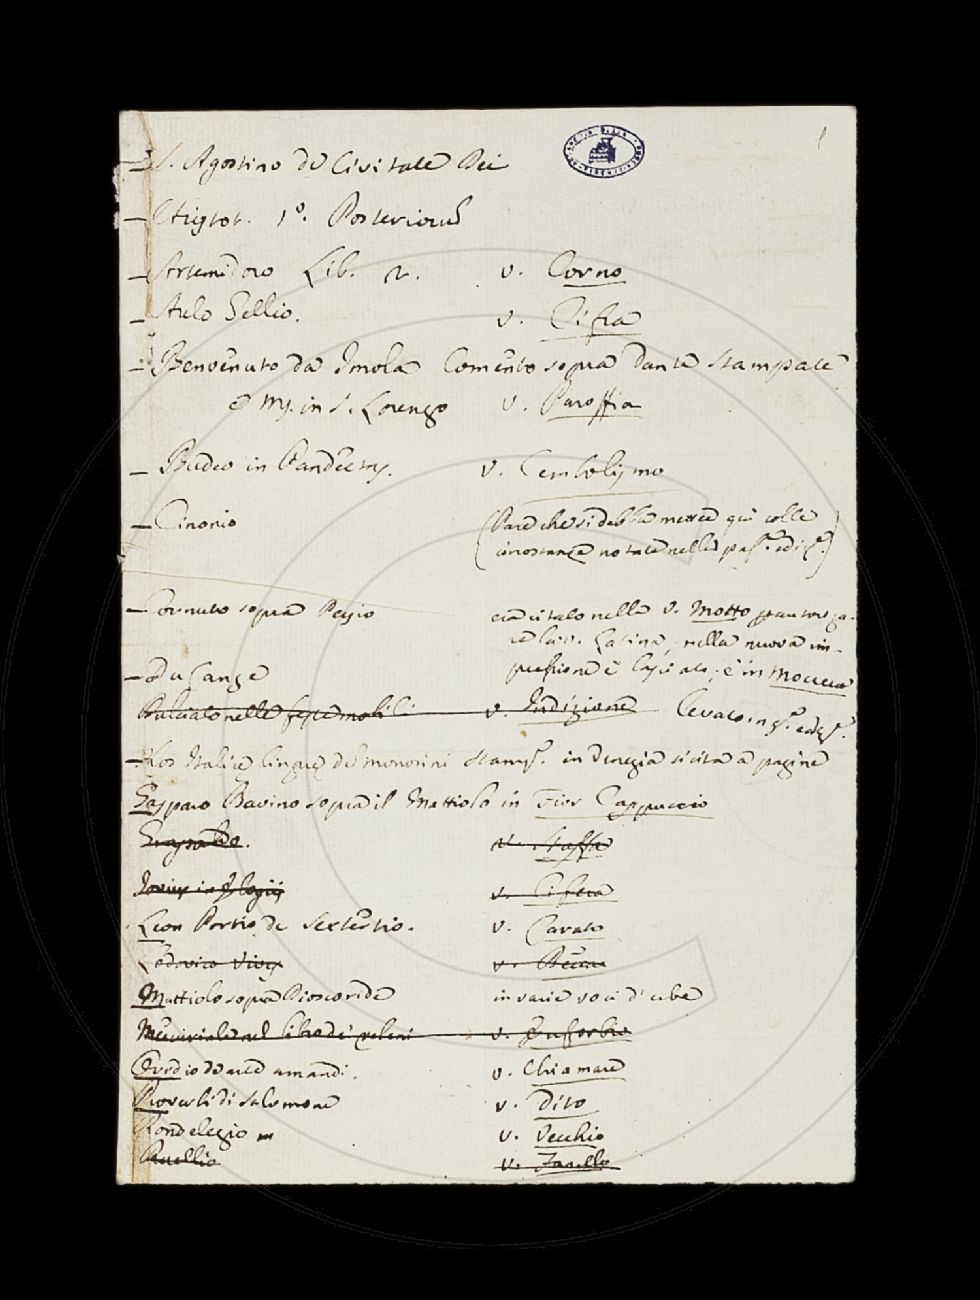 S. Agostino de Civitate Dei
1
Aristot. 1º. Posteriorum
Artemidoro Lib. 2. v. Corno
Aulo Gellio. v. Cifra
Benvenuto da Imola Comento sopra Dante stampato
e ms. in S. Lorenzo v. Paroffia
Budeo in Pandectas. v. Cembolismo
Cinonio (Pare che si debba mettere qui colle
circostanze notate nelle pas.
Cornuto sopra Persio era citato nella v. Motto
Latina, nella nuova im-
pressione è lasciato; è in
Du Cange
nelle feste mobili v. Indizione Levato in
Flos Italicę linguę del Monosini stamp. in Venezia si cita a pagine
Gasparo Bavino sopra il Mattiolo in Fior Cappuccio
v. Staffa
Jovius in Elogiis v. Cifera
Leon Portio de Sextertio. v. Carato
Lodovico Vives v.
Mattiolo sopra Dioscoride in varie voci d'erbe
nel libro de' veleni v. Euforbio
Ovidio de arte amandi. v. Chiamare
Proverbi di Salomone v. Dito
Rondelezio v. Vecchio
Ruellio v.